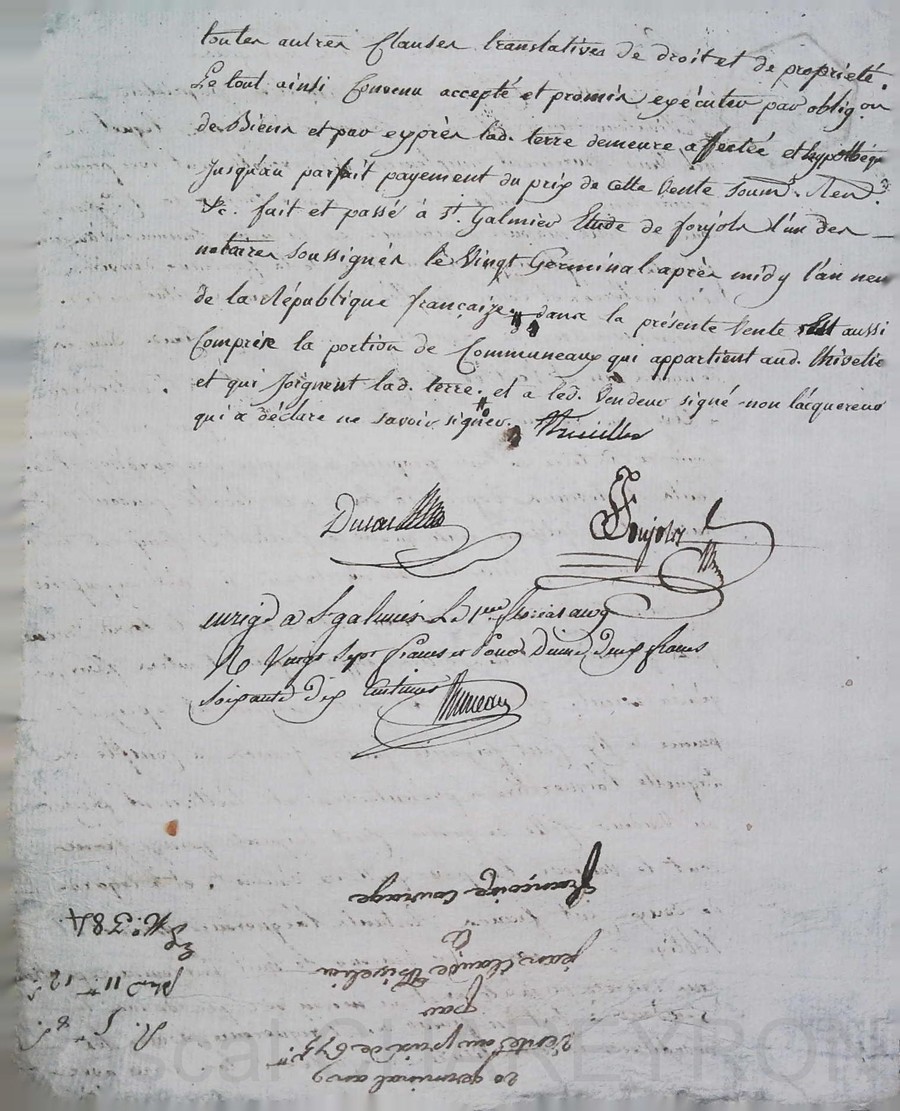 toutes autres Clauses translatives de droit et de propriété.
Le tout ainsi Convenu accepté et promis exécuter par oblig.on
de Biens et par exprès lad. terre demeure affectée et hypothéq
Jusqu'au parfait payement du prix de cette Vente
&c. fait et passé à St. Galmier Etude de forjols l'un des
notaires soussignés le Vingt Germinal après midy l'an neuf
de la République françaize, dans la présente Vente est aussi
Comprise la portion de Communeaux qui appartient aud. thivelin
et qui joignent lad. terre, et a led. Vendeur signé non l'acquereur
qui a déclaré ne savoir signer.
Forjols
enrigd a St galmier Le 1er floréal an 9
R Vingt Sept francs et pour Dixme Deux francs
Soixante dix Centimes
françoise courage
à
jean Claude thivelin
par
Vente au prix de 675
20 germinal an 9
N°. 384